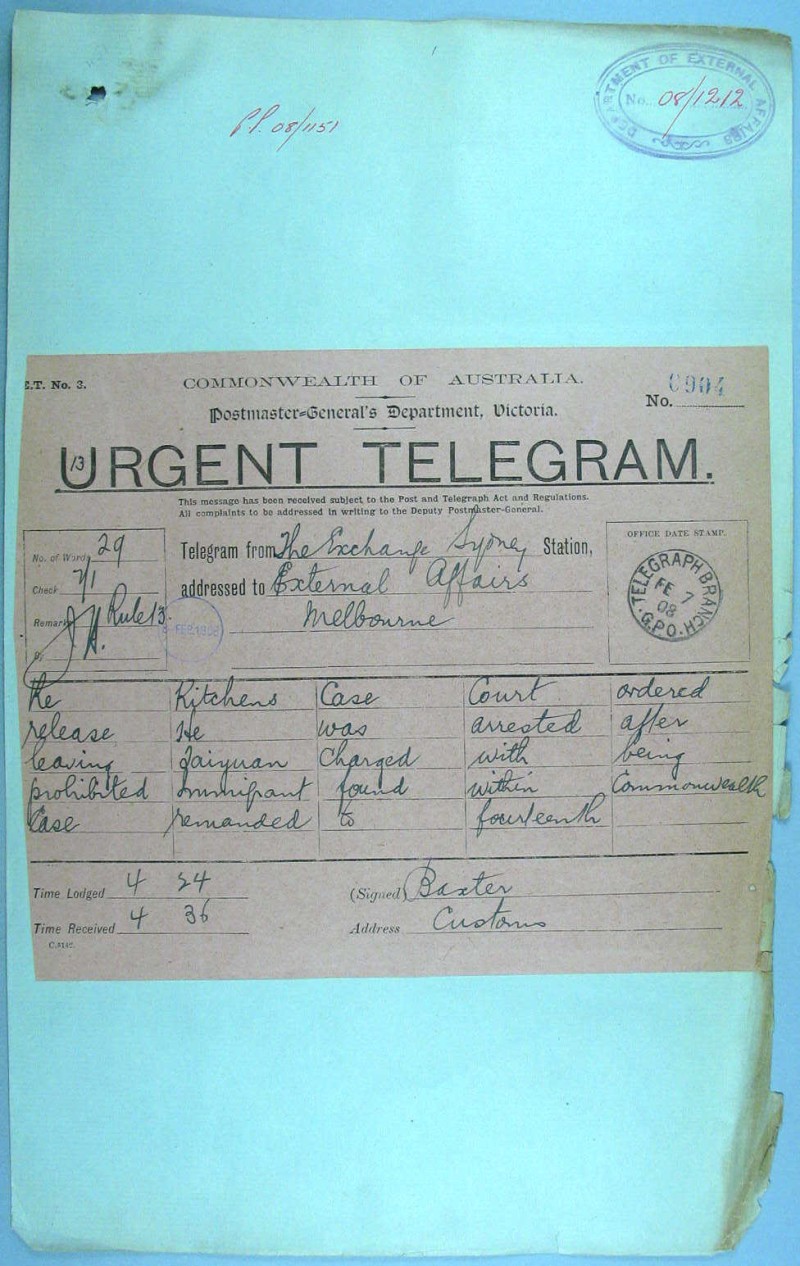 DEPARTMENT OF EXTERNAL AFFAIRS
No. 08/1212
P.P. 08/1151
E.T. No. 3.
COMMONWEALTH OF AUSTRALIA.
0904
No.
Postmaster-General's Department, Victoria.
13
URGENT TELEGRAM.
This message has been received subject to the Post and Telegraph Act and Regulations.
All complaints to be addressed in writing to the Deputy Postmaster-General.
No. of Words 29
Check 7/1
Remarks Rule 13.
By J.H.
Telegram from The Exchange Sydney Station,
addressed to External Affairs
Melbourne
FEB 1908
OFFICE DATE STAMP.
TELEGRAPH BRANCH
FE 7
08
G.P.O.
Re Kitchens Case Court ordered
release He was arrested after
leaving Taiyuan charged with being
prohibited immigrant found within Commonwealth
Case remanded to fourteenth
Time Lodged 4 24
(Signed) Baxter
Time Received 4 36
Address Customs